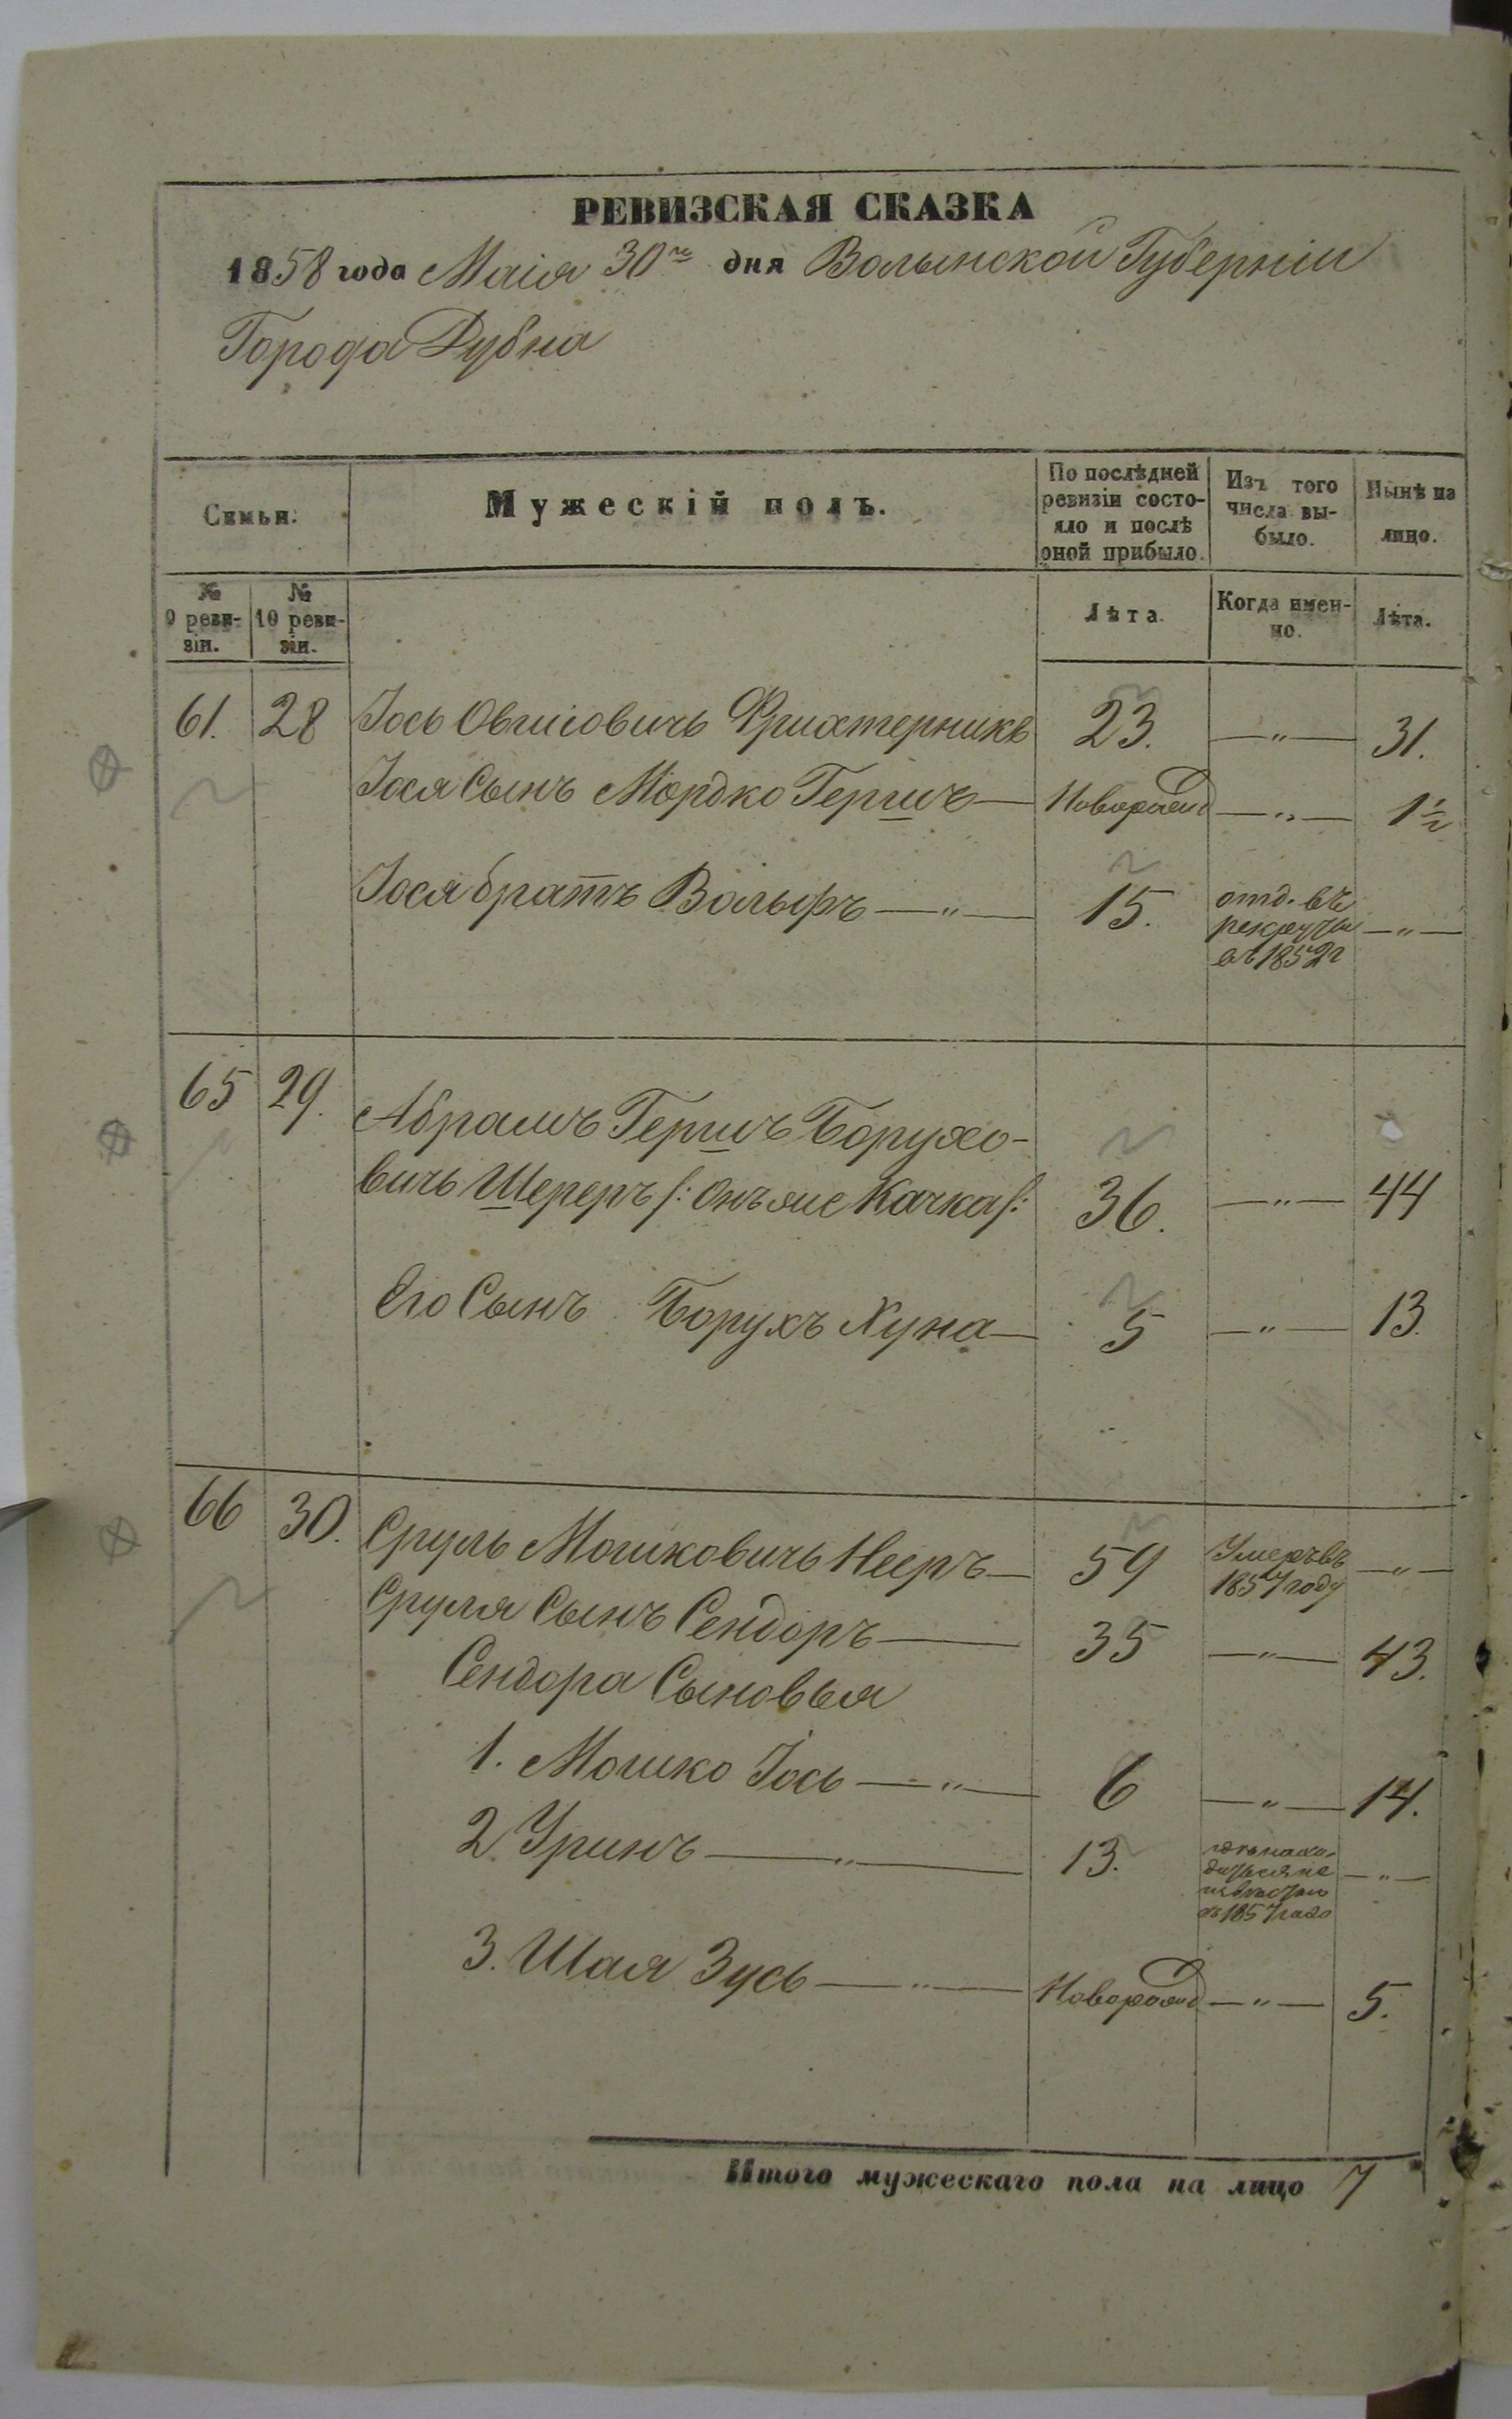 РЕВИЗСКАЯ СКАЗКА
1858 года Маія 30го дня Волынской Губерніи
Города Дубна
Семьи.
Мужескій полъ.
По послѣдней ревизіи состо-
яло и послѣ оной прибыло.
Изъ того числа вы-
было.
Нынѣ на лицо.
№ 9 реви-
зіи.
№ 10 реви-
зіи.
Лѣта.
Когда имен-
но.
Лѣта.
61. 28 Іось Овшіовичь Фрихтерникъ 23. —"— 31.
Іося Сынъ Мордко Гершъ — Новорожд —"— 1½
Іося братъ Вольфъ —"— 15. отд. въ рекруты въ 1852 г —"—
65 29. Абрамъ Гершъ Борухо-
вичь Шереръ /: онъ же Качка /: 36. —"— 44
Его Сынъ Борухъ Хуна — 5 —"— 13.
66 30. Сруль Мошковичь Нееръ — 59 Умеръ въ 1857 году —"—
Сруля Сынъ Сендоръ — 35 —"— 43.
Сендора Сыновья
1. Мошко Іось —"— 6 —"— 14.
2. Уринъ —"— 13. въ 1857 года —"—
3. Шая Зусь —"— Новорожд —"— 5.
Итого мужескаго пола на лицо 7